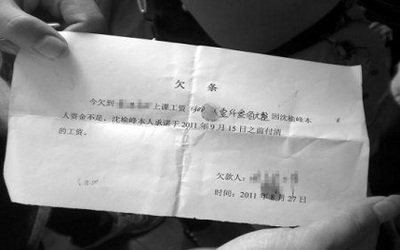 欠 条
今欠到 上课工资 因沈榆峰本
人资金不足,沈榆峰本人承诺于 2011 年 9 月 15 日之前付清
的工资。
欠款人:
时间:2011 年 8 月 27 日